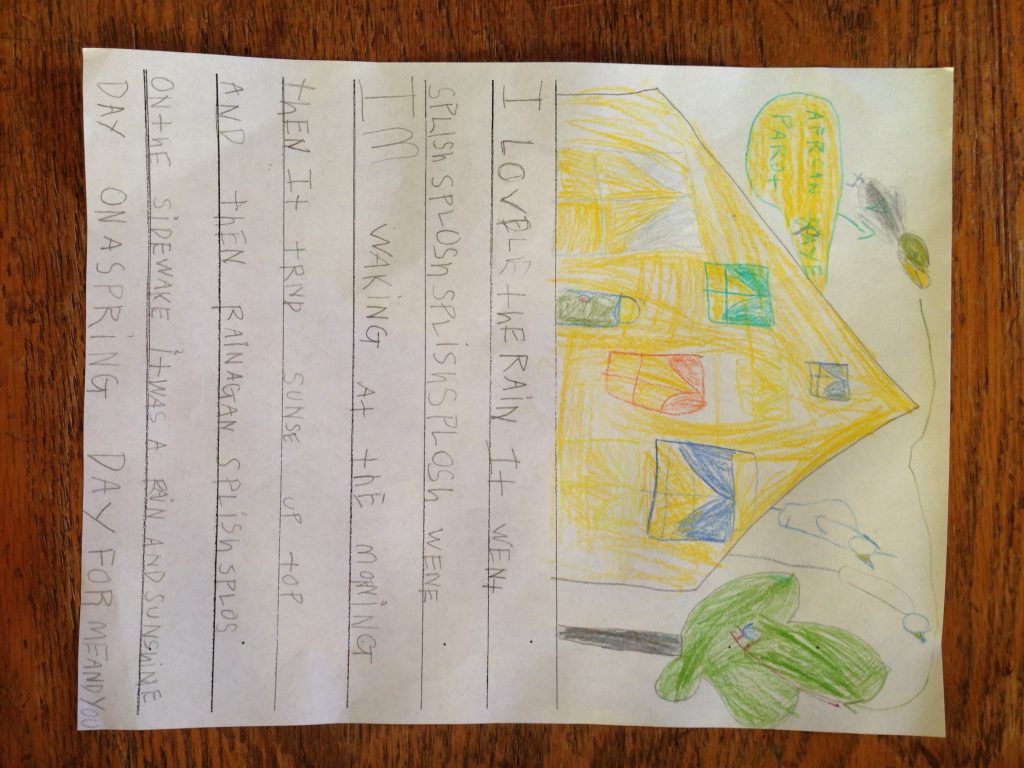 AFRCAN GRAYE
PAROT
I LOVE THE RAIN It WENt
SPLISh SPLOSh SPLISh SPLOSh WENE
IM WAKING At thE MORNING
thEN It tRND SUNSE UP tOP
AND thEN RAINAGAN SPLISh SPLOS.
ON thE SIDEWAKE itWAS A RAIN AND SUNSHINE
DAY ON A SPRING DAY FOR ME AND YOU